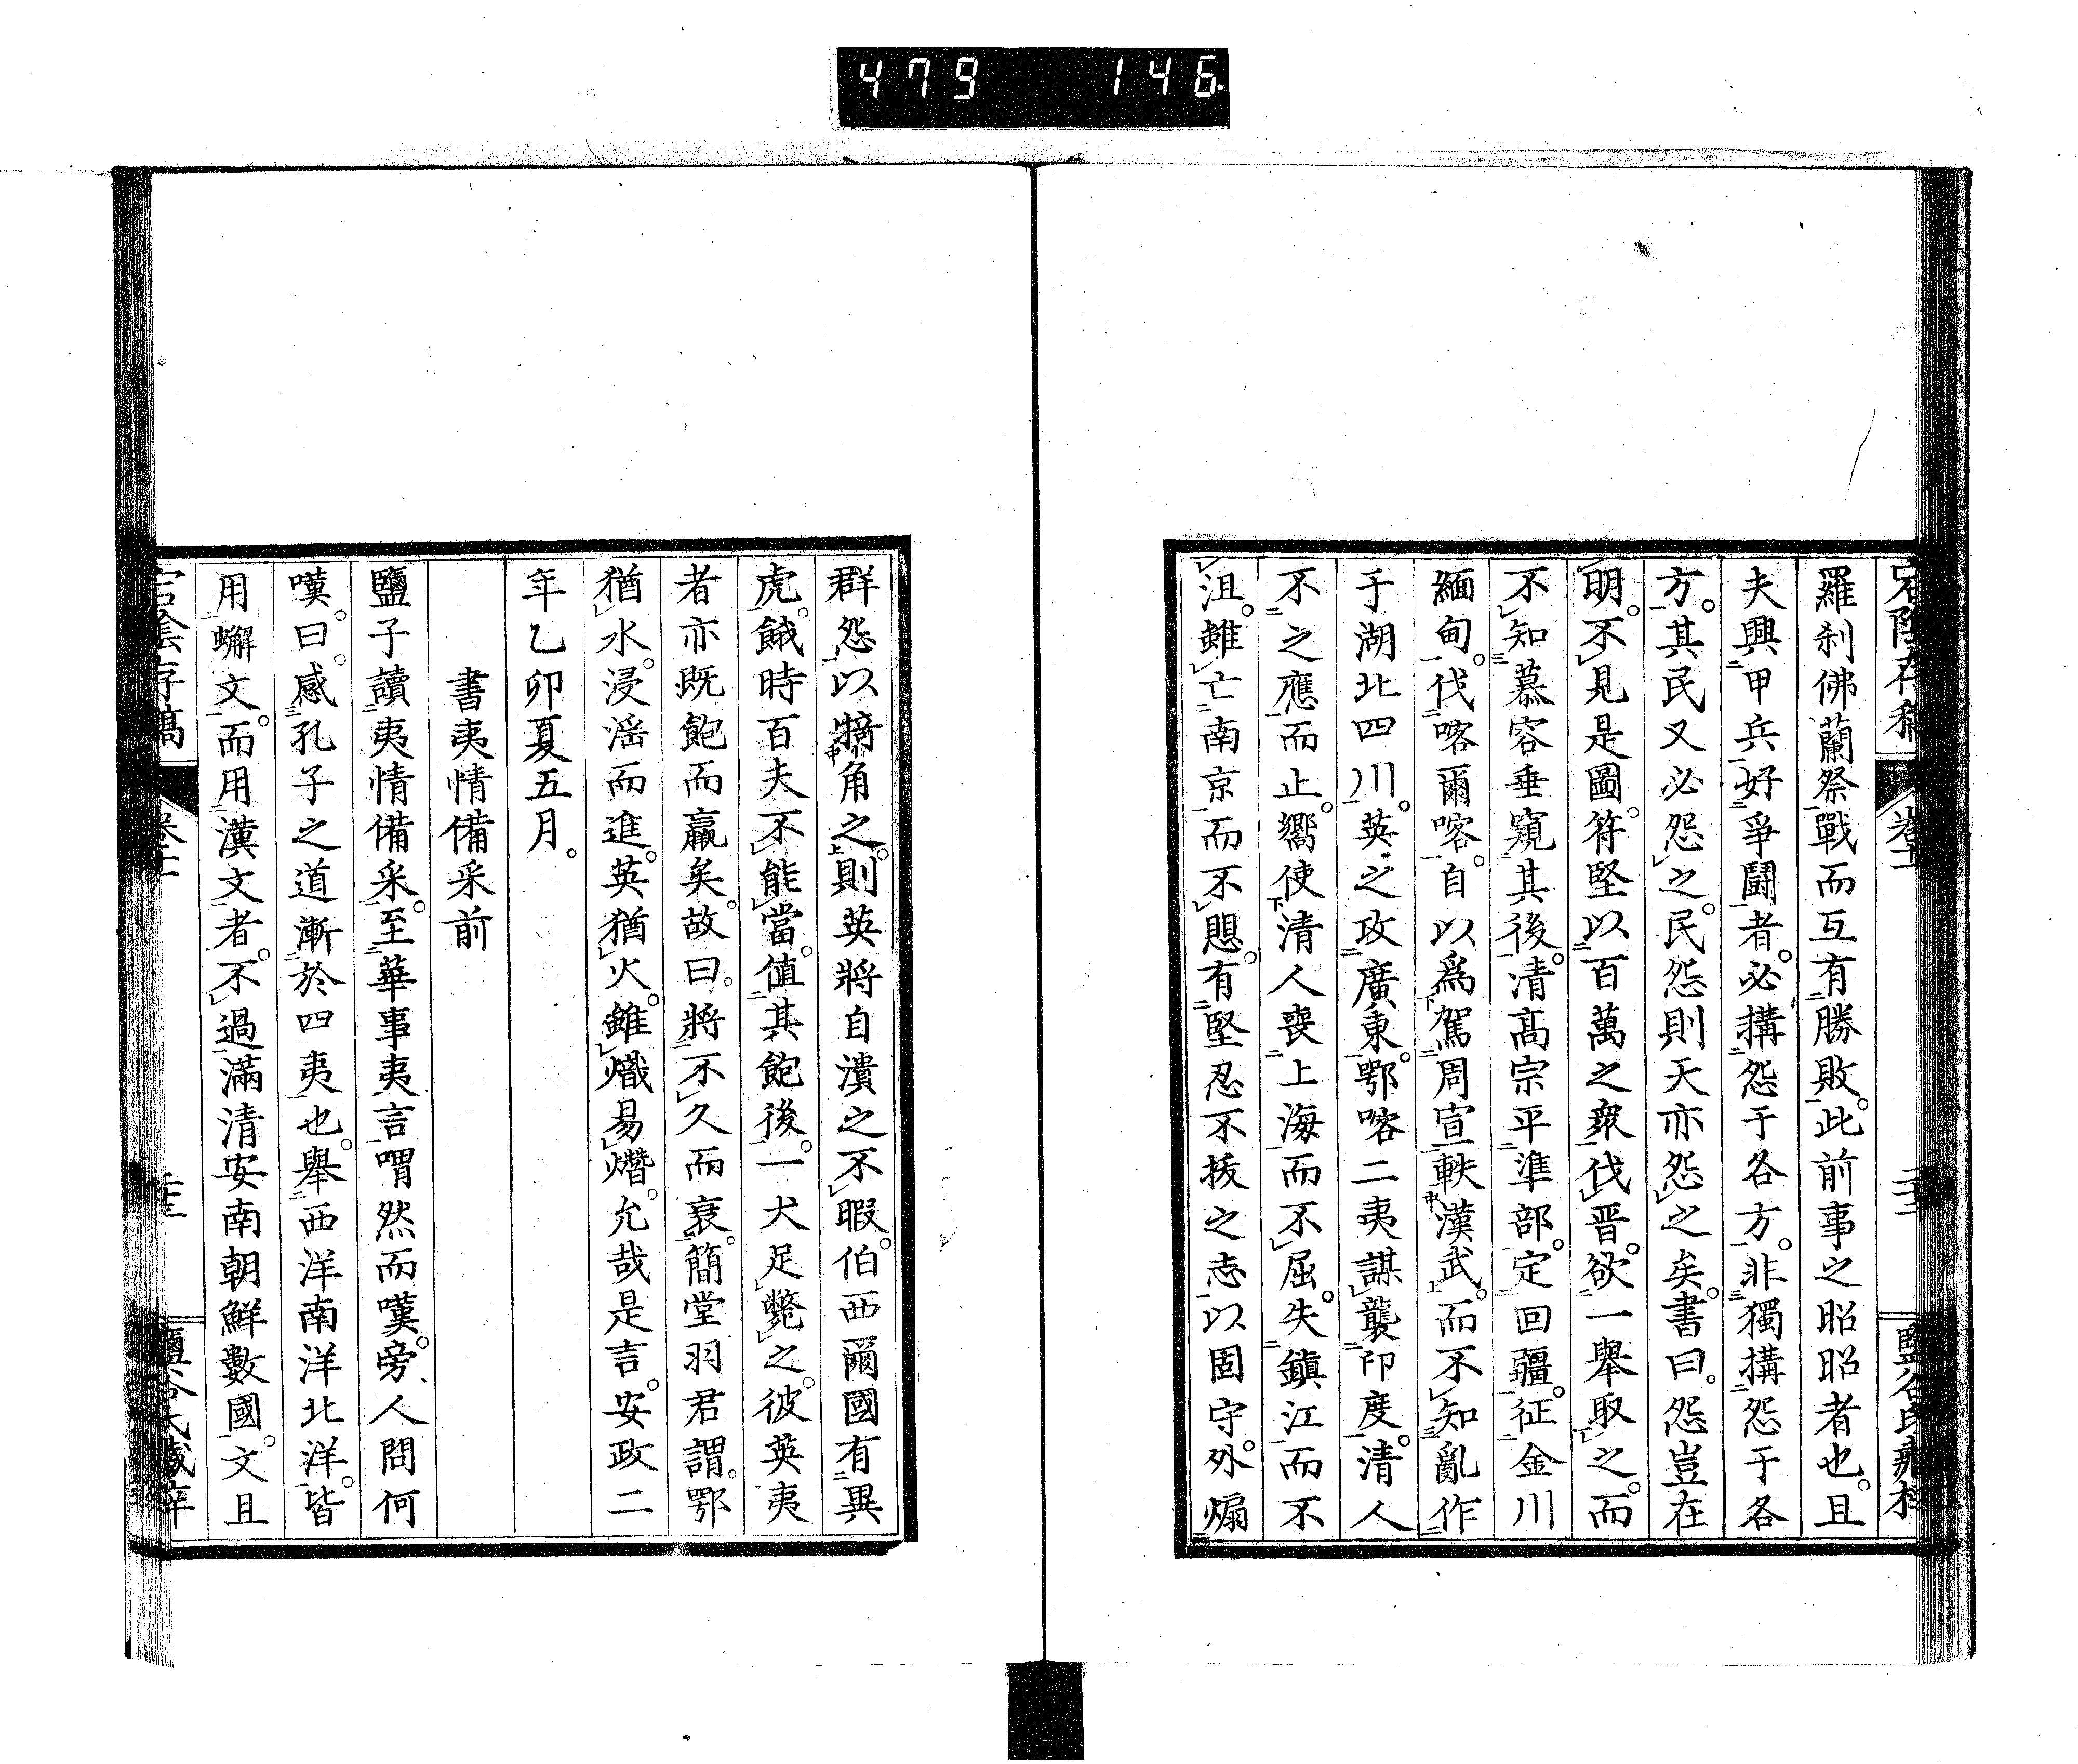 479 146
羅刹佛蘭祭戰而互有勝敗。此前事之昭昭者也。且
夫興甲兵好爭鬪者。必搆怨于各方。非獨搆怨于各
方。其民又必怨之。民怨則天亦怨之矣。書曰。怨豈在
明。不見是圖。符堅以百萬之衆伐晋。欲一舉取之。而
不知慕容垂窺其後。清高宗平準部。定回疆。征金川
緬甸。伐喀爾喀。自以爲駕周宣軼漢武。而不知亂作
于湖北四川。英之攻廣東。鄂喀二夷謀襲印度。清人
不之應而止。嚮使清人喪上海而不屈。失鎮江而不
沮。雖亡南京而不愳。有堅忍不拔之志以固守。外煽
群怨以犄角之。則英將自潰之不暇。伯西爾國有異
虎。餓時百夫不能當。値其飽後。一犬足斃之。彼英夷
者亦既飽而羸矣。故曰。將不久而衰。簡堂羽君謂。鄂
猶水。浸滛而進。英猶火。雖熾易熸。允哉是言。安政二
年乙卯夏五月。
書夷情備采前
鹽子讀夷情備采。至華事夷言喟然而嘆。旁人問何
嘆。曰。感孔子之道漸於四夷也。舉西洋南洋北洋。皆
用蠏文。而用漢文者。不過滿清安南朝鮮數國。文且